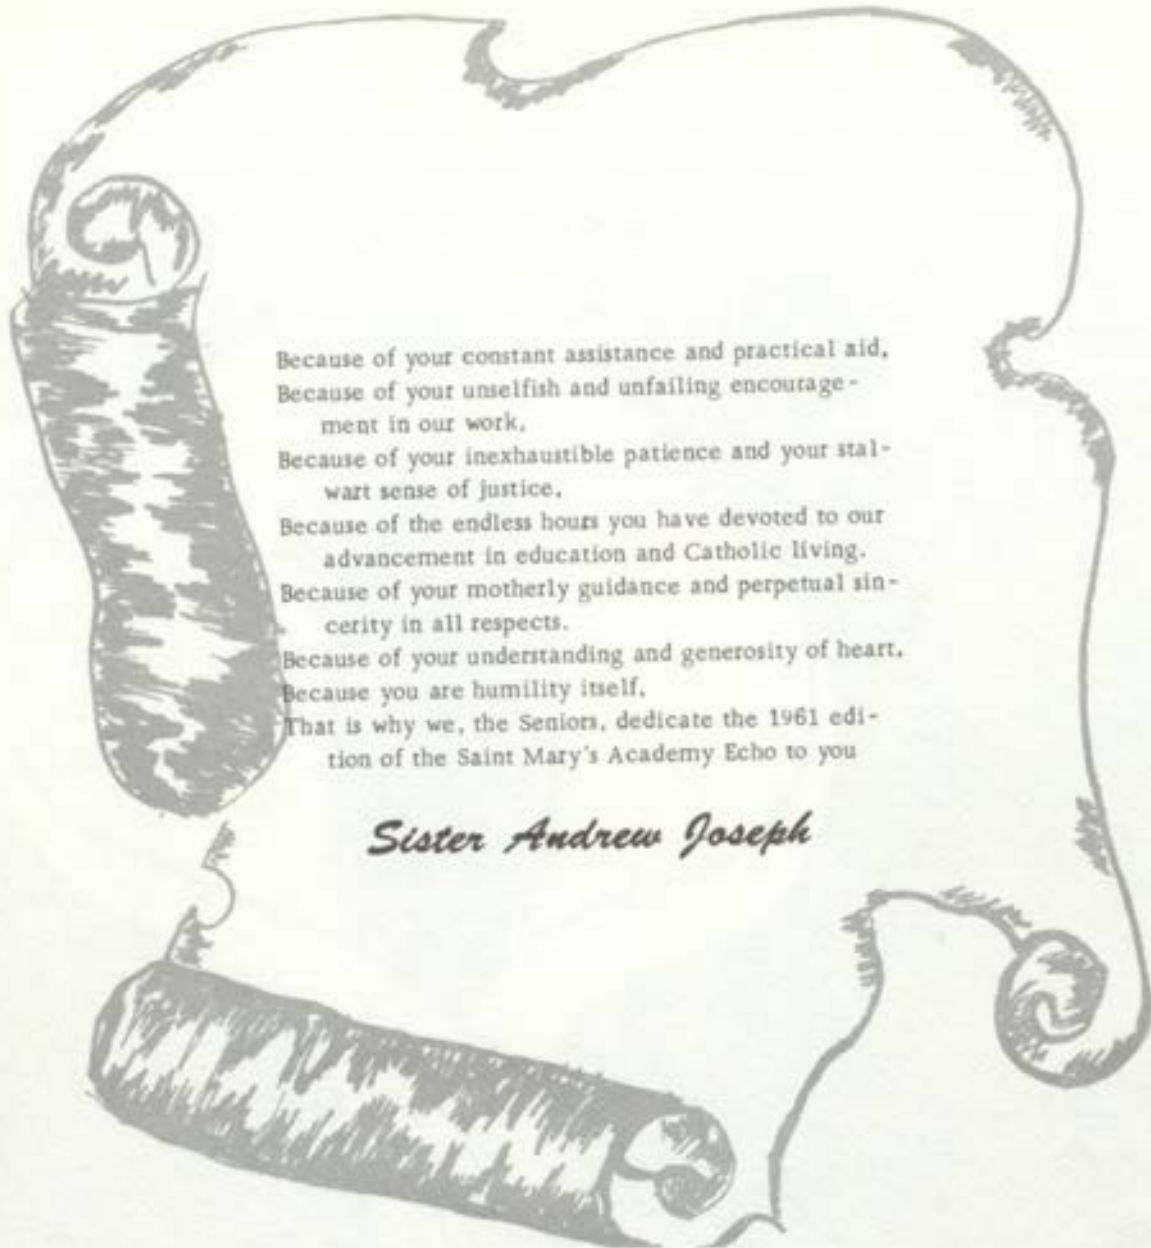 Because of your constant assistance and practical aid,
Because of your unselfish and unfailing encourage-
ment in our work,
Because of your inexhaustible patience and your stal-
wart sense of justice,
Because of the endless hours you have devoted to our
advancement in education and Catholic living.
Because of your motherly guidance and perpetual sin-
cerity in all respects.
Because of your understanding and generosity of heart,
Because you are humility itself,
That is why we, the Seniors, dedicate the 1961 edi-
tion of the Saint Mary's Academy Echo to you
Sister Andrew Joseph